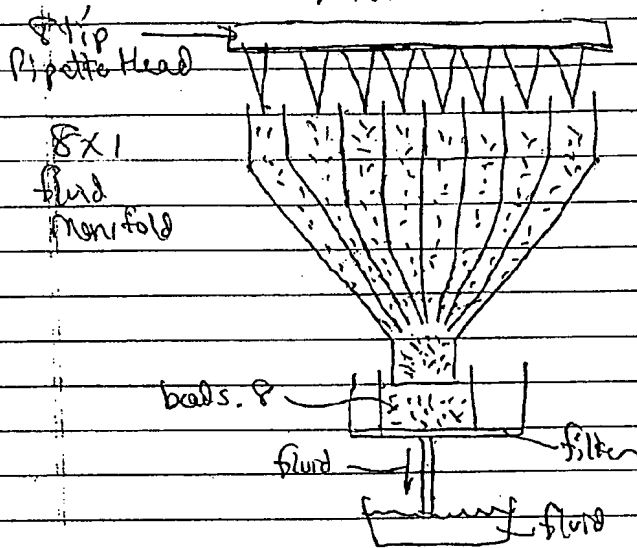 8 tip
Pipette Head
8X1
fluid
Manifold
beads. 8
filter
fluid
fluid